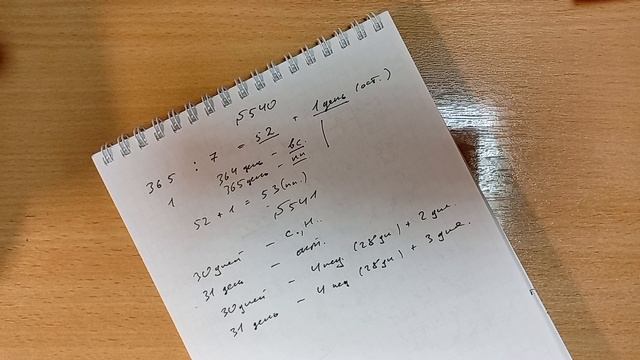 №5540
365 : 7 = 52 + 1 день (ост.)
1 364 день - вс.
365 день - пн
52 + 1 = 53 (пн.)
№5541
30 дней - с., н..
31 день - окт.
30 дней - 4 нед. (28 дн) + 2 дня.
31 день - 4 нед (28 дн) + 3 дня.